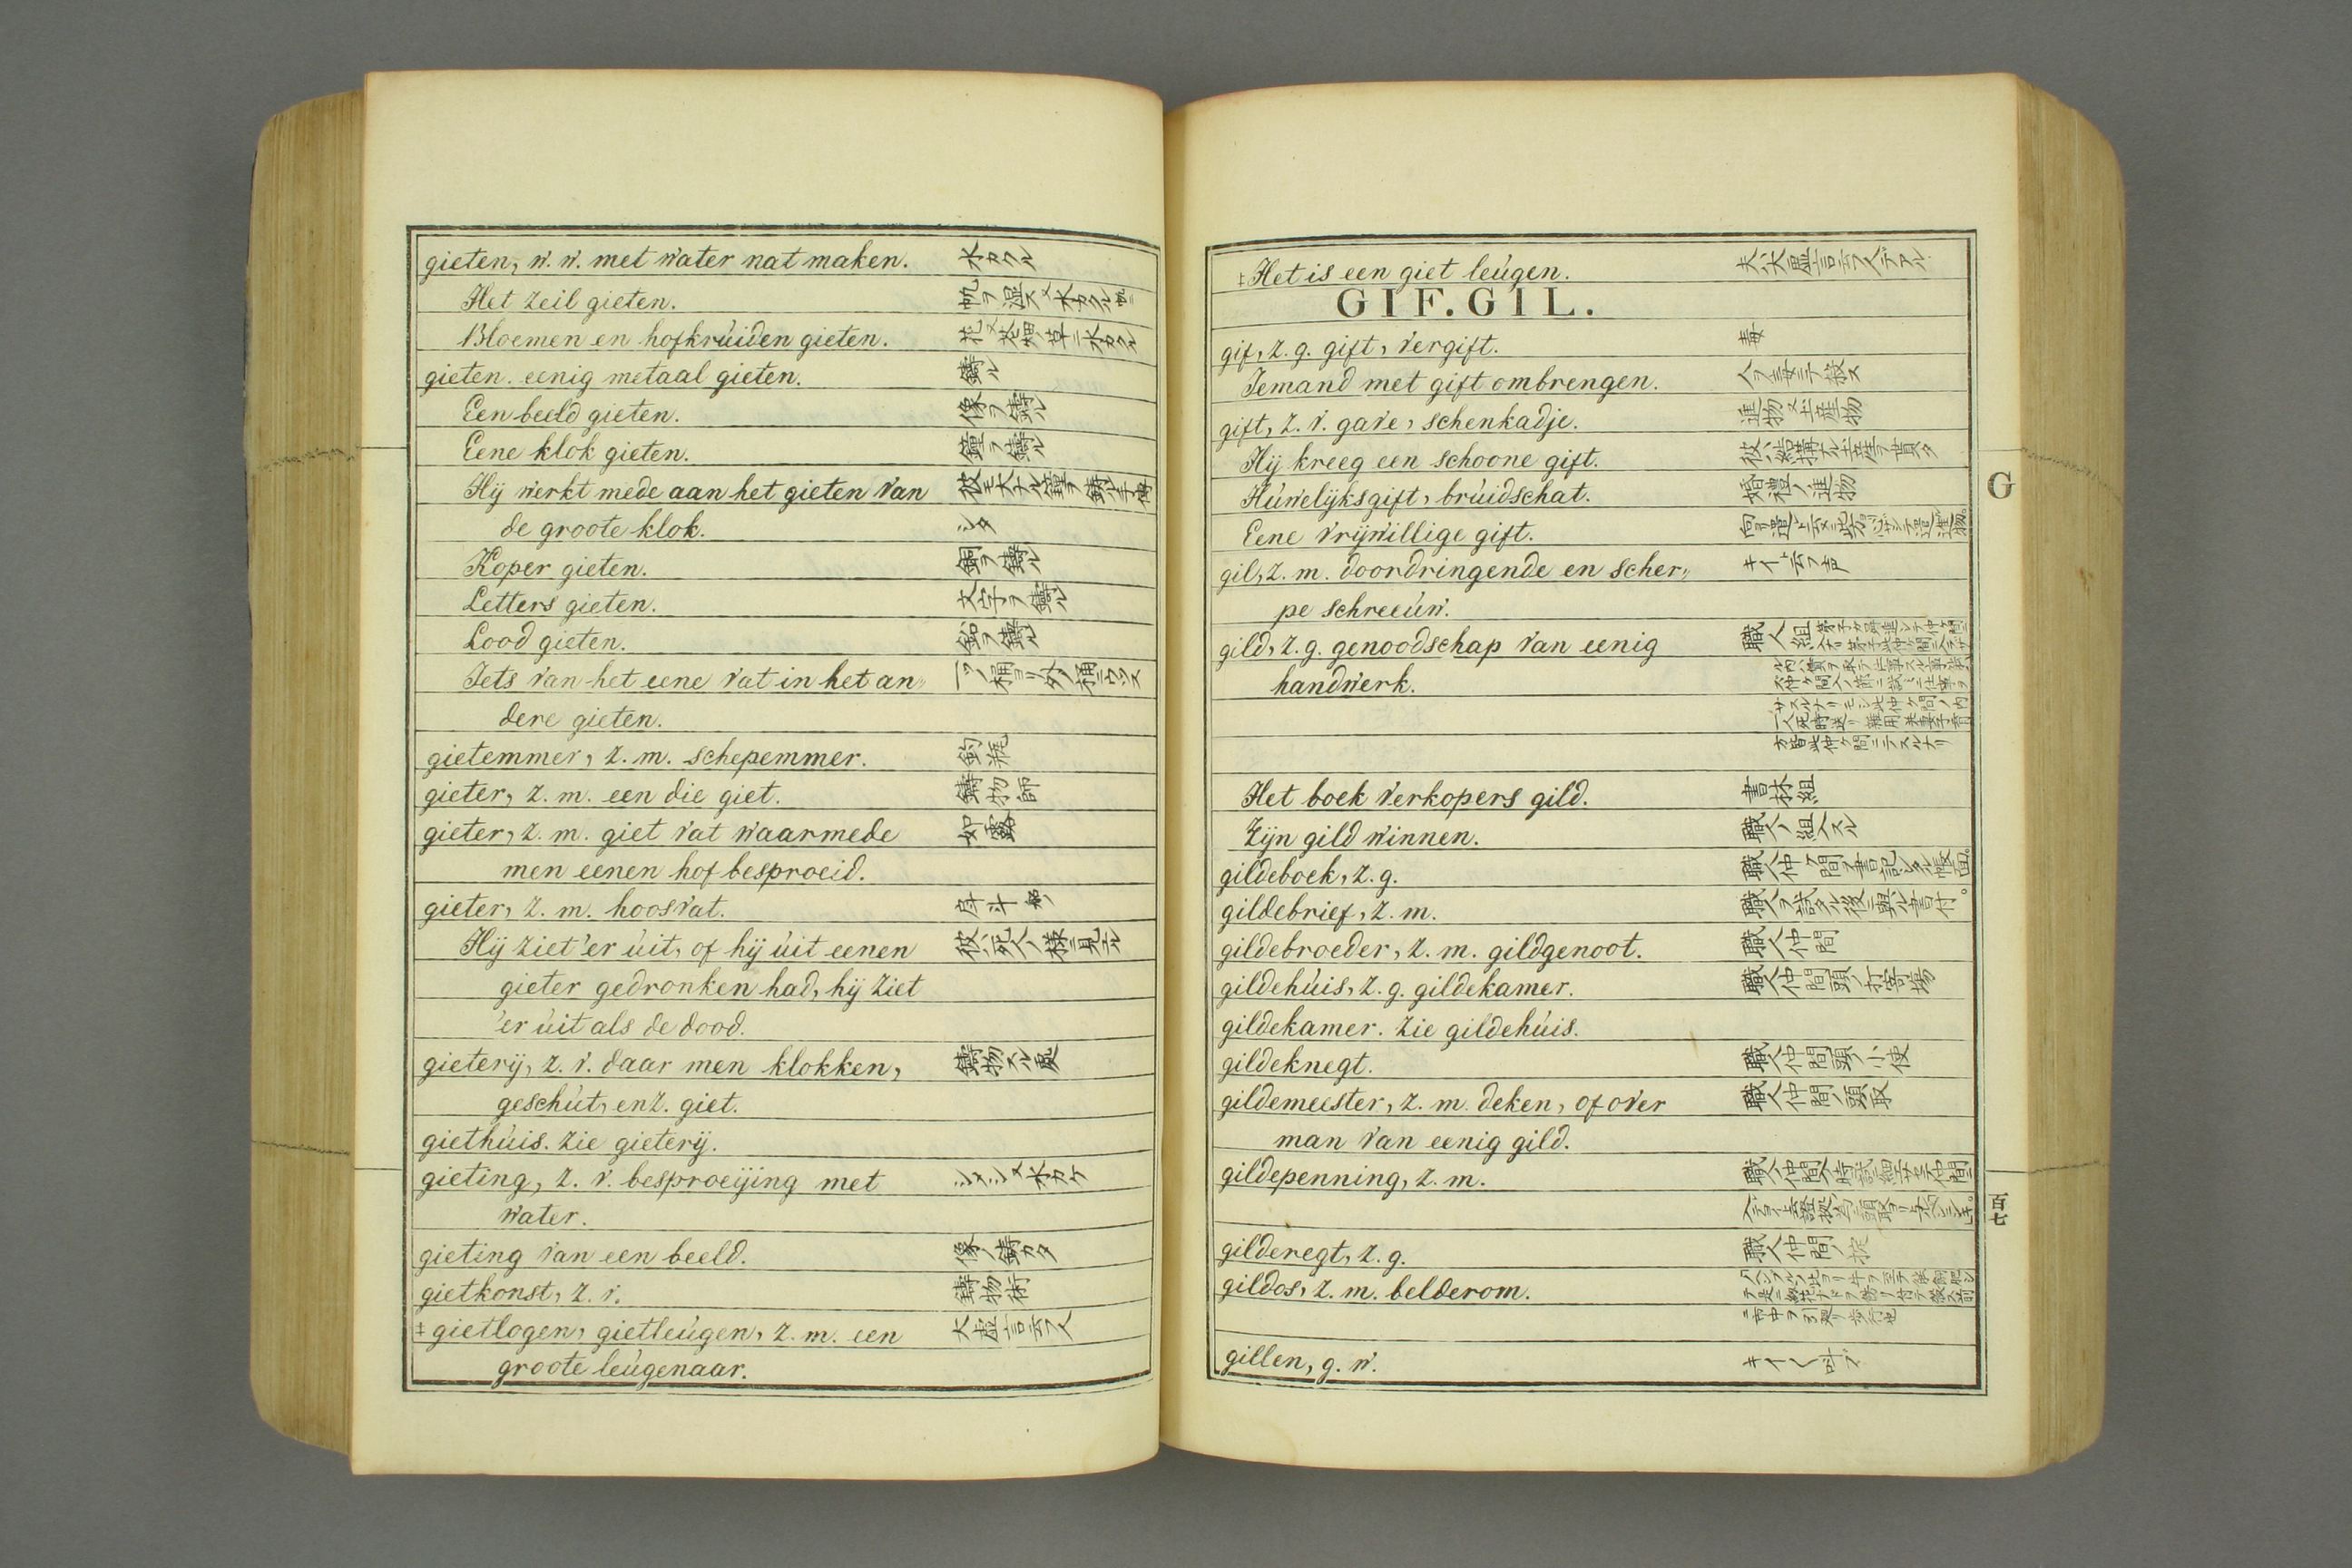 gieten, w. w. met water nat maken. 水カクル
Het zeil gieten. 帆ヲ湿ス又水カクル
Bloemen en hofkrúiden gieten.
gieten. eenig metaal gieten. 鑄ル
Een beeld gieten. 像ヲ鑄ル
Eene klok gieten. 鐘ヲ鑄ル
Hij werkt mede aan het gieten van
de groote klok. シタ
Koper gieten. 銅ヲ鑄ル
Letters gieten. 文字ヲ鑄ル
Lood gieten. 鉛ヲ鑄ル
Iets van het eene vat in het an„
dere gieten.
gietemmer, z. m. schepemmer. 釣瓶
gieter, z. m. een die giet. 鑄物師
gieter, z. m. giet vat waarmede 如露
men eenen hof besproeid.
gieter, z. m. hoosvat. 戽斗
Hij ziet 'er úit, of hij úit eenen 彼ハ死人ノ様ニ見エル
gieter gedronken had, hij ziet
'er úit als de dood.
gieterij, z. v. daar men klokken, 鑄物スル処
geschút, enz. giet.
giethúis. zie gieterij.
gieting, z. v. besproeijing met シメシ又水カケ
water.
gieting van een beeld. 像ノ鑄カタ
gietkonst, z. v. 鑄物術
‡ gietlogen, gietleúgen, z. m. een 大虚言云フ人
groote leúgenaar.
‡ Het is een giet leúgen. 夫ハ大虚言云フ人デアル
GIF. GIL.
gif, z. g. gift, vergift. 毒
Iemand met gift ombrengen. 人ヲ毒ニテ殺ス
gift, z. v. gave, schenkadje. 進物又土産物
Hij kreeg een schoone gift. 彼ハ結構ナル土産ヲ貰タ
Húwelijksgift, brúidschat. 婚禮ノ進物
Eene vrijwillige gift.
G
gil, z. m. doordringende en scher„ キイト云フ声
pe schreeúw.
gild, z. g. genoodschap van eenig 職人組
handwerk.
Het boek verkopers gild. 書林組
Zijn gild winnen. 職人ノ組ヘ入スル
gildeboek, z. g. 職人仲ケ間ヲ書記シタル帳面。
gildebrief, z. m.
gildebroeder, z. m. gildgenoot. 職人仲間
gildehúis, z. g. gildekamer. 職人仲間頭ノ打寄場
gildekamer. zie gildehúis.
gildeknegt. 職人仲間頭ノ小使
gildemeester, z. m. deken, of over 職人仲間ノ頭取
man van eenig gild.
gildepenning, z. m.
百七
gilderegt, z. g. 職人仲間ノ掟
gildos, z. m. belderom.
gillen, g. w. キイ〱叫ブ